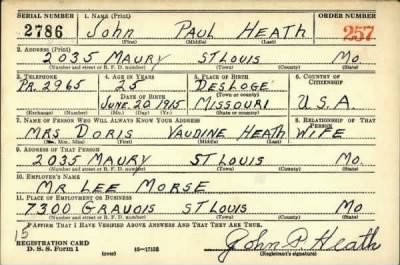 SERIAL NUMBER 1. NAME (Print) ORDER NUMBER
2786 John PAUL HEATH 257
(First) (Middle) (Last)
2. ADDRESS (Print)
2035 MAURY ST LOUIS MO.
(Number and street or R. F. D. number) (Town) (County) (State)
3. TELEPHONE 4. AGE IN YEARS 5. PLACE OF BIRTH 6. COUNTRY OF CITIZENSHIP
PR. 2965 25 DESLOGE
DATE OF BIRTH (Town or county)
JUNE. 20 1915 MISSOURI U.S.A.
(Exchange) (Number) (Mo.) (Day) (Yr.) (State or country)
7. NAME OF PERSON WHO WILL ALWAYS KNOW YOUR ADDRESS 8. RELATIONSHIP OF THAT PERSON
MRS DORIS VAUDINE HEATH WIFE
(Mr., Mrs., Miss) (First) (Middle) (Last)
9. ADDRESS OF THAT PERSON
2035 MAURY ST LOUIS MO.
(Number and street or R. F. D. number) (Town) (County) (State)
10. EMPLOYER'S NAME
MR LEE MORSE
11. PLACE OF EMPLOYMENT OR BUSINESS
7300 GRAVOIS ST LOUIS MO
(Number and street or R. F. D. number) (Town) (County) (State)
I AFFIRM THAT I HAVE VERIFIED ABOVE ANSWERS AND THAT THEY ARE TRUE.
15
REGISTRATION CARD
D. S. S. Form 1 (over) 16-17105 John P. Heath
(Registrant's signature)